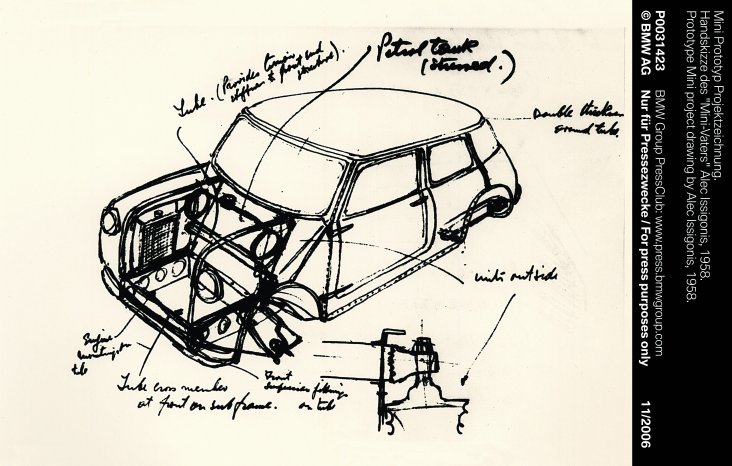 Petrol tank
(stressed.)
Tube. (Provides torsional
stiffness to front end
structure).
Double thickness
around tube
units outside
Engine
mountings on
tube
Tube cross member
at front on subframe.
Front
suspension fittings
on tube
Mini Prototyp Projektzeichnung,
Handskizze des "Mini-Vaters" Alec Issigonis, 1958.
Prototype Mini project drawing by Alec Issigonis, 1958.
P0031423 BMW Group PressClub: www.press.bmwgroup.com
© BMW AG Nur für Pressezwecke / For press purposes only 11/2006